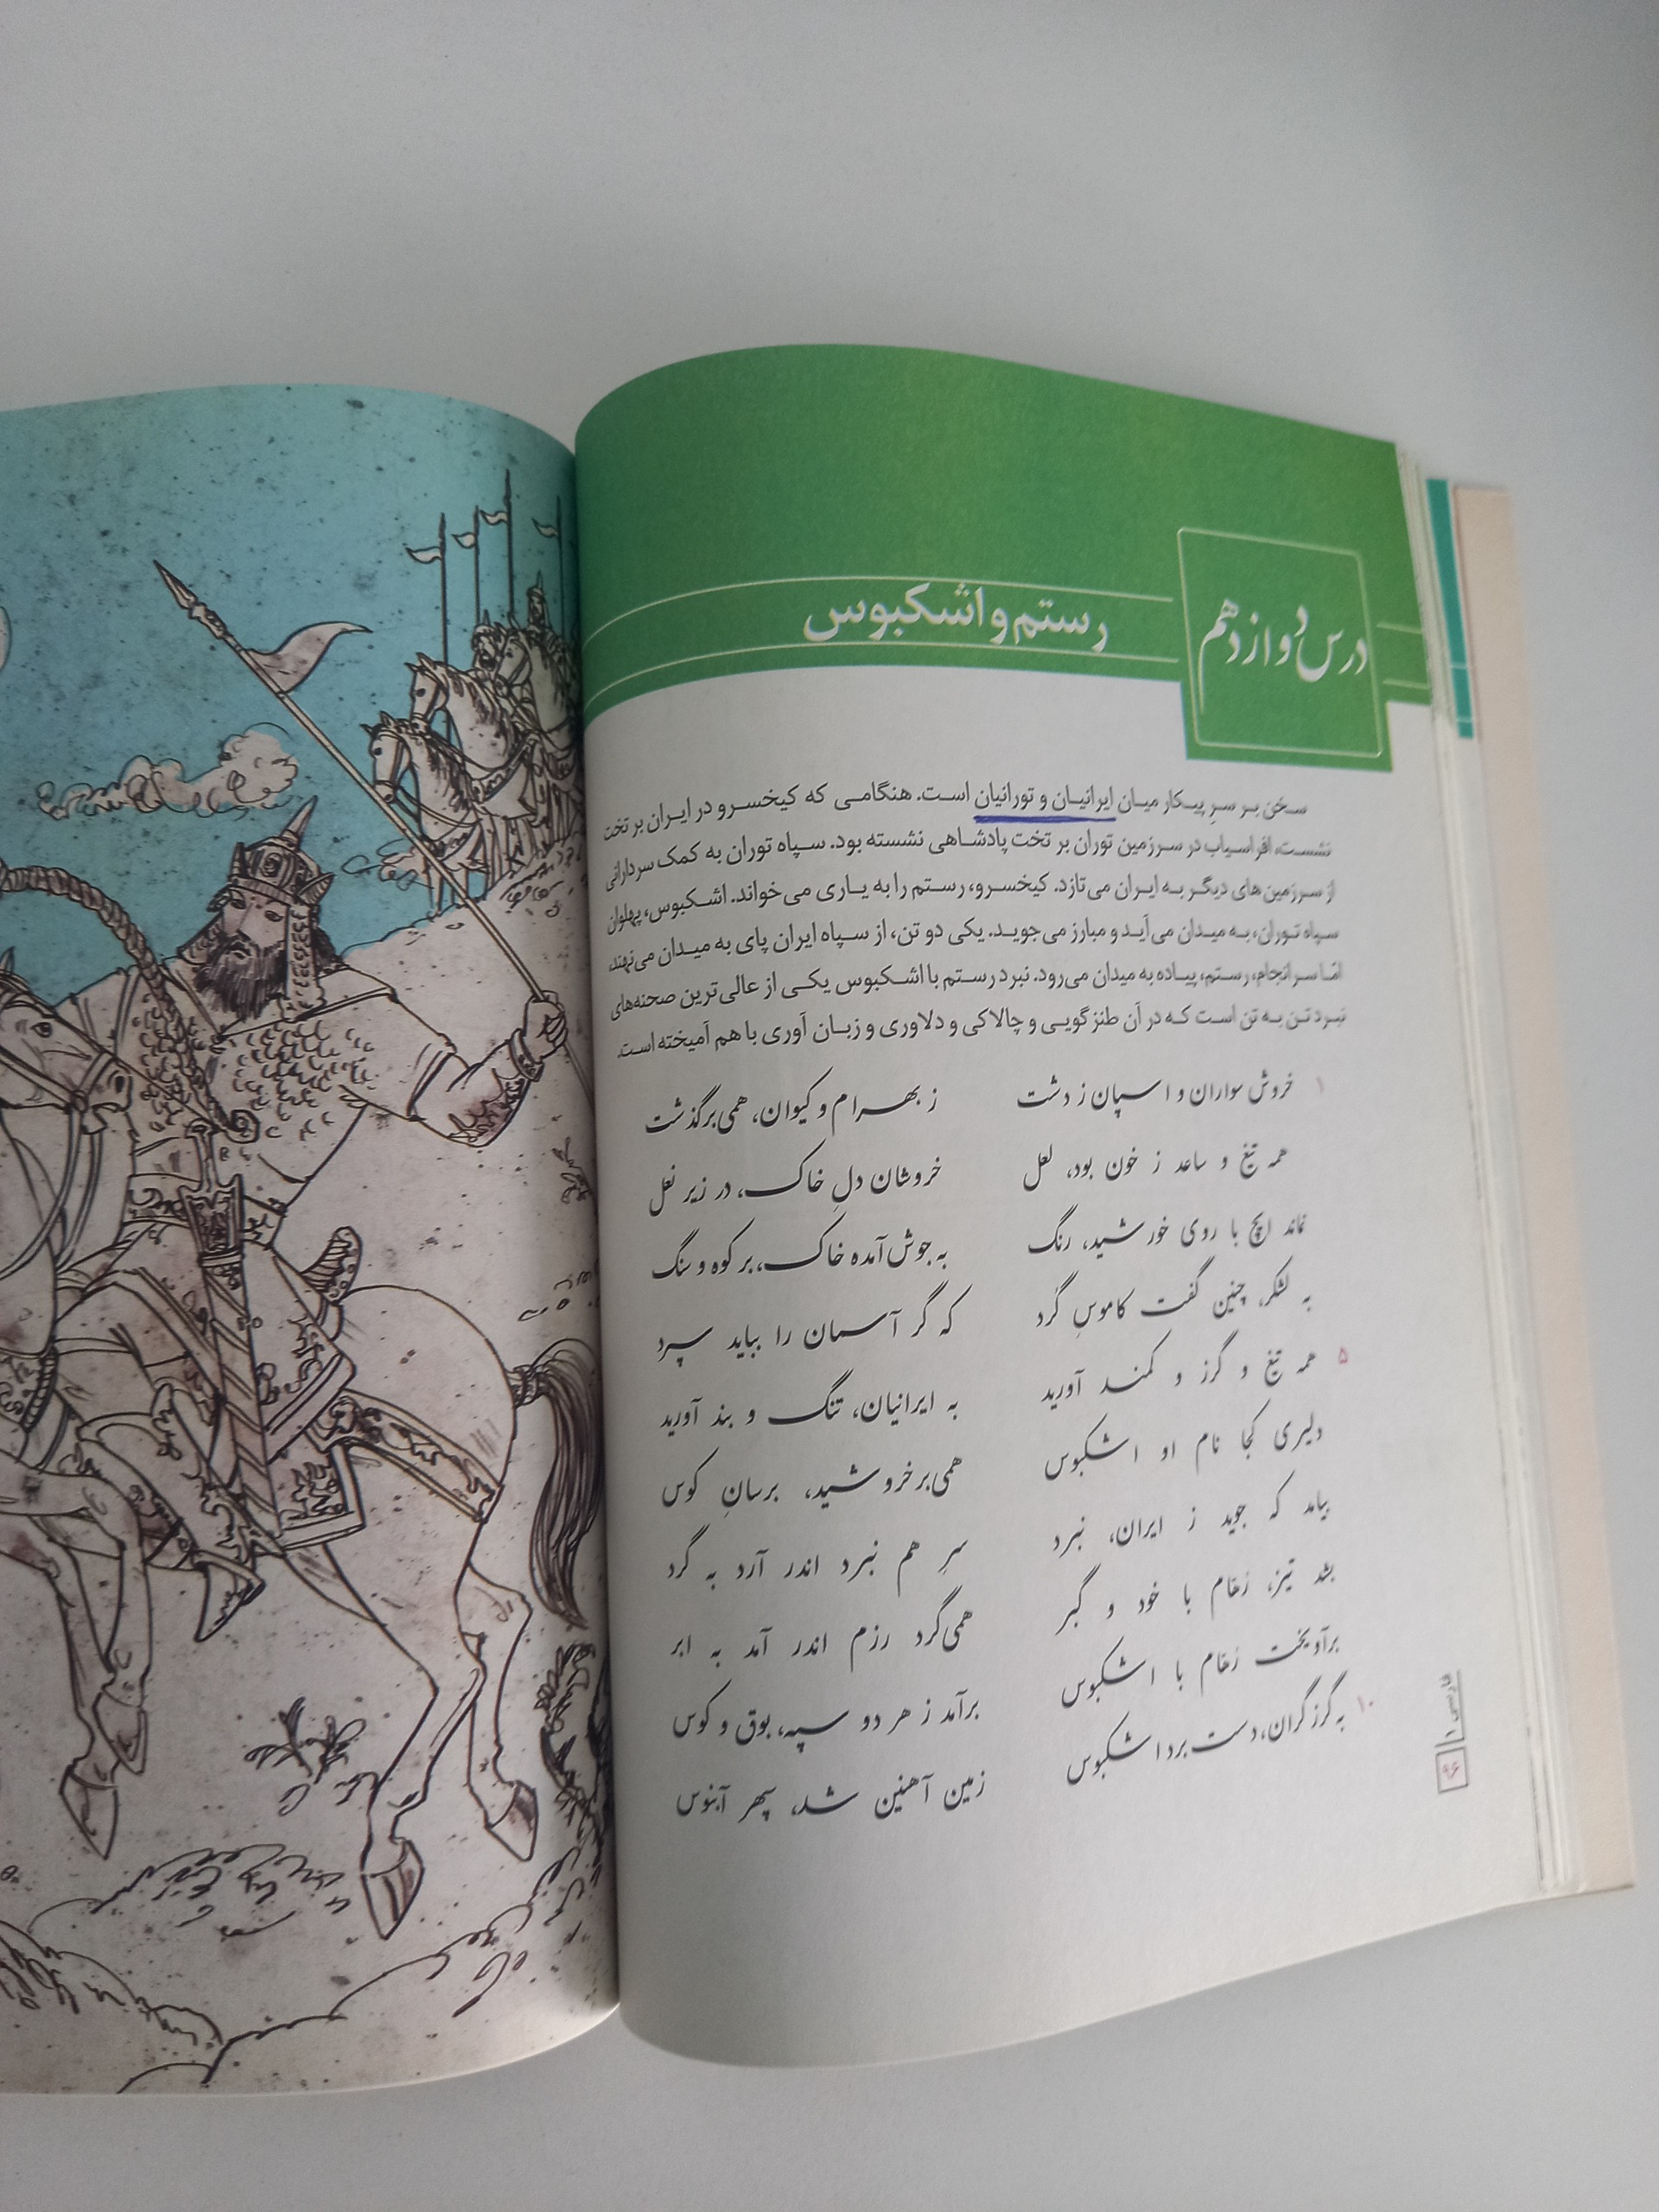 درس دوازدهم
رستم و اشکبوس
سخن بر سرِ پیکار میان ایرانیان و تورانیان است. هنگامی که کیخسرو در ایران بر تخت
نشست، افراسیاب در سرزمین توران بر تخت پادشاهی نشسته بود. سپاه توران به کمک سردارانی
از سرزمین‌های دیگر به ایران می‌تازد. کیخسرو، رستم را به یاری می‌خواند. اشکبوس، پهلوان
سپاه توران، به میدان می‌آید و مبارز می‌جوید. یکی دو تن، از سپاه ایران پای به میدان می‌نهند،
امّا سرانجام، رستم، پیاده به میدان می‌رود. نبرد رستم با اشکبوس یکی از عالی‌ترین صحنه‌های
نبرد تن به تن است که در آن طنزگویی و چالاکی و دلاوری و زبان آوری با هم آمیخته است.
۱ خروش سواران و اسپان ز دشت ز بهرام و کیوان، همی برگذشت
همه تیغ و ساعد ز خون بود، لعل خروشان دلِ خاک، در زیر نعل
نماند ایچ با روی خورشید، رنگ به جوش آمده خاک، بر کوه و سنگ
به لشکر، چنین گفت کاموسِ گرد که گر آسمان را بباید سپرد
۵ همه تیغ و گرز و کمند آورید به ایرانیان، تنگ و بند آورید
دلیری کجا نام او اشکبوس همی‌برخروشید، برسانِ کوس
بیامد که جوید ز ایران، نبرد سرِ هم نبرد اندر آرد به گرد
بشد تیز، رُهّام با خود و گبر همی‌گرد رزم اندر آمد به ابر
برآویخت رُهّام با اشکبوس برآمد ز هر دو سپه، بوق و کوس
۱۰ به گرز گران، دست برد اشکبوس زمین آهنین شد، سپهر آبنوس
فارسی ۱
۹۶